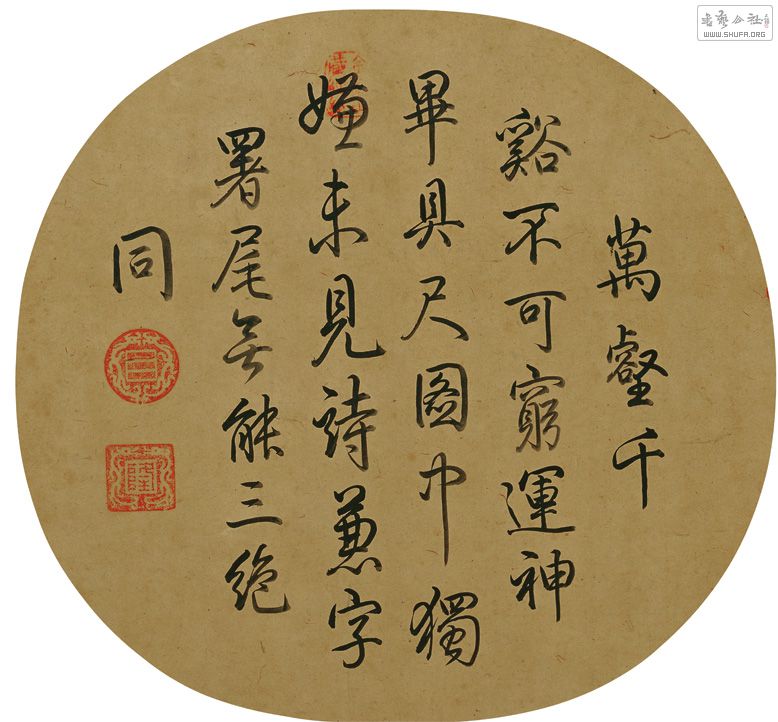 萬壑千
谿不可窮運神
畢具尺圖中獨
嫌未見詩兼字
署尾無能三絶
同
書藝公社
WWW.SHUFA.ORG